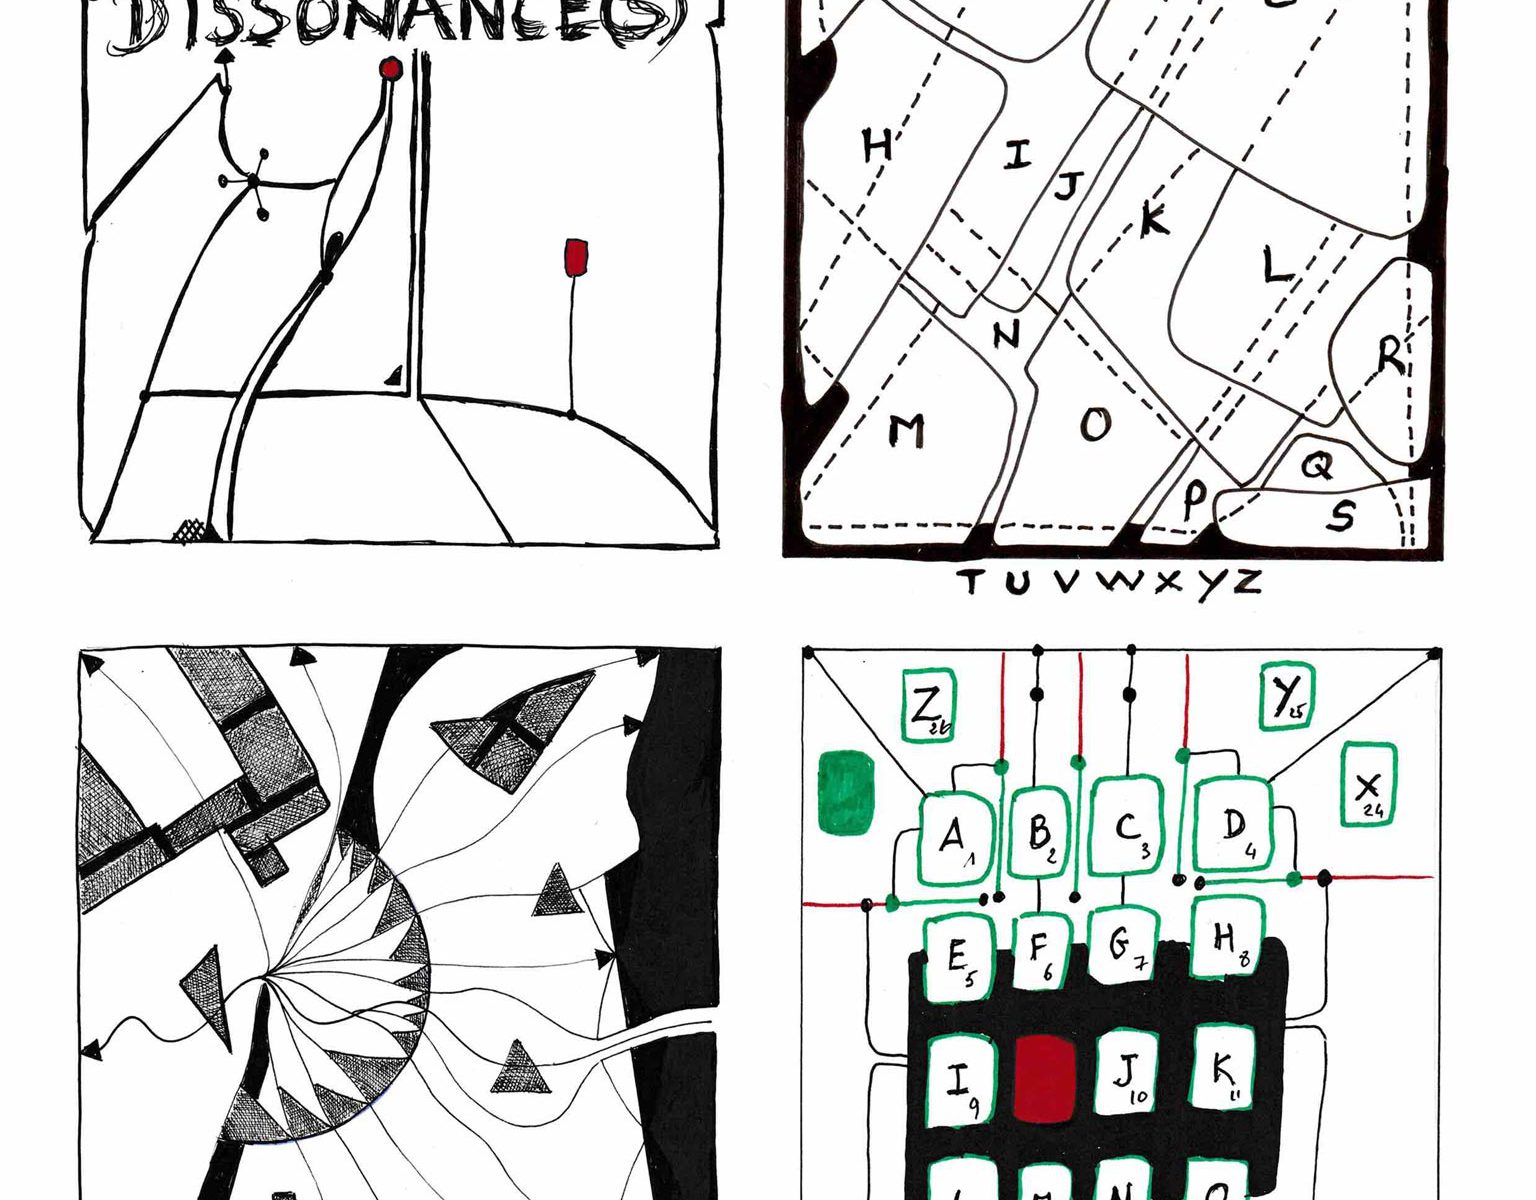 DISSONANCE(S)
H I J K L
N R
M O Q
P S
T U V W X Y Z
Z 26 Y 25
X 24
A 1 B 2 C 3 D 4
E 5 F 6 G 7 H 8
I 9 J 10 K 11